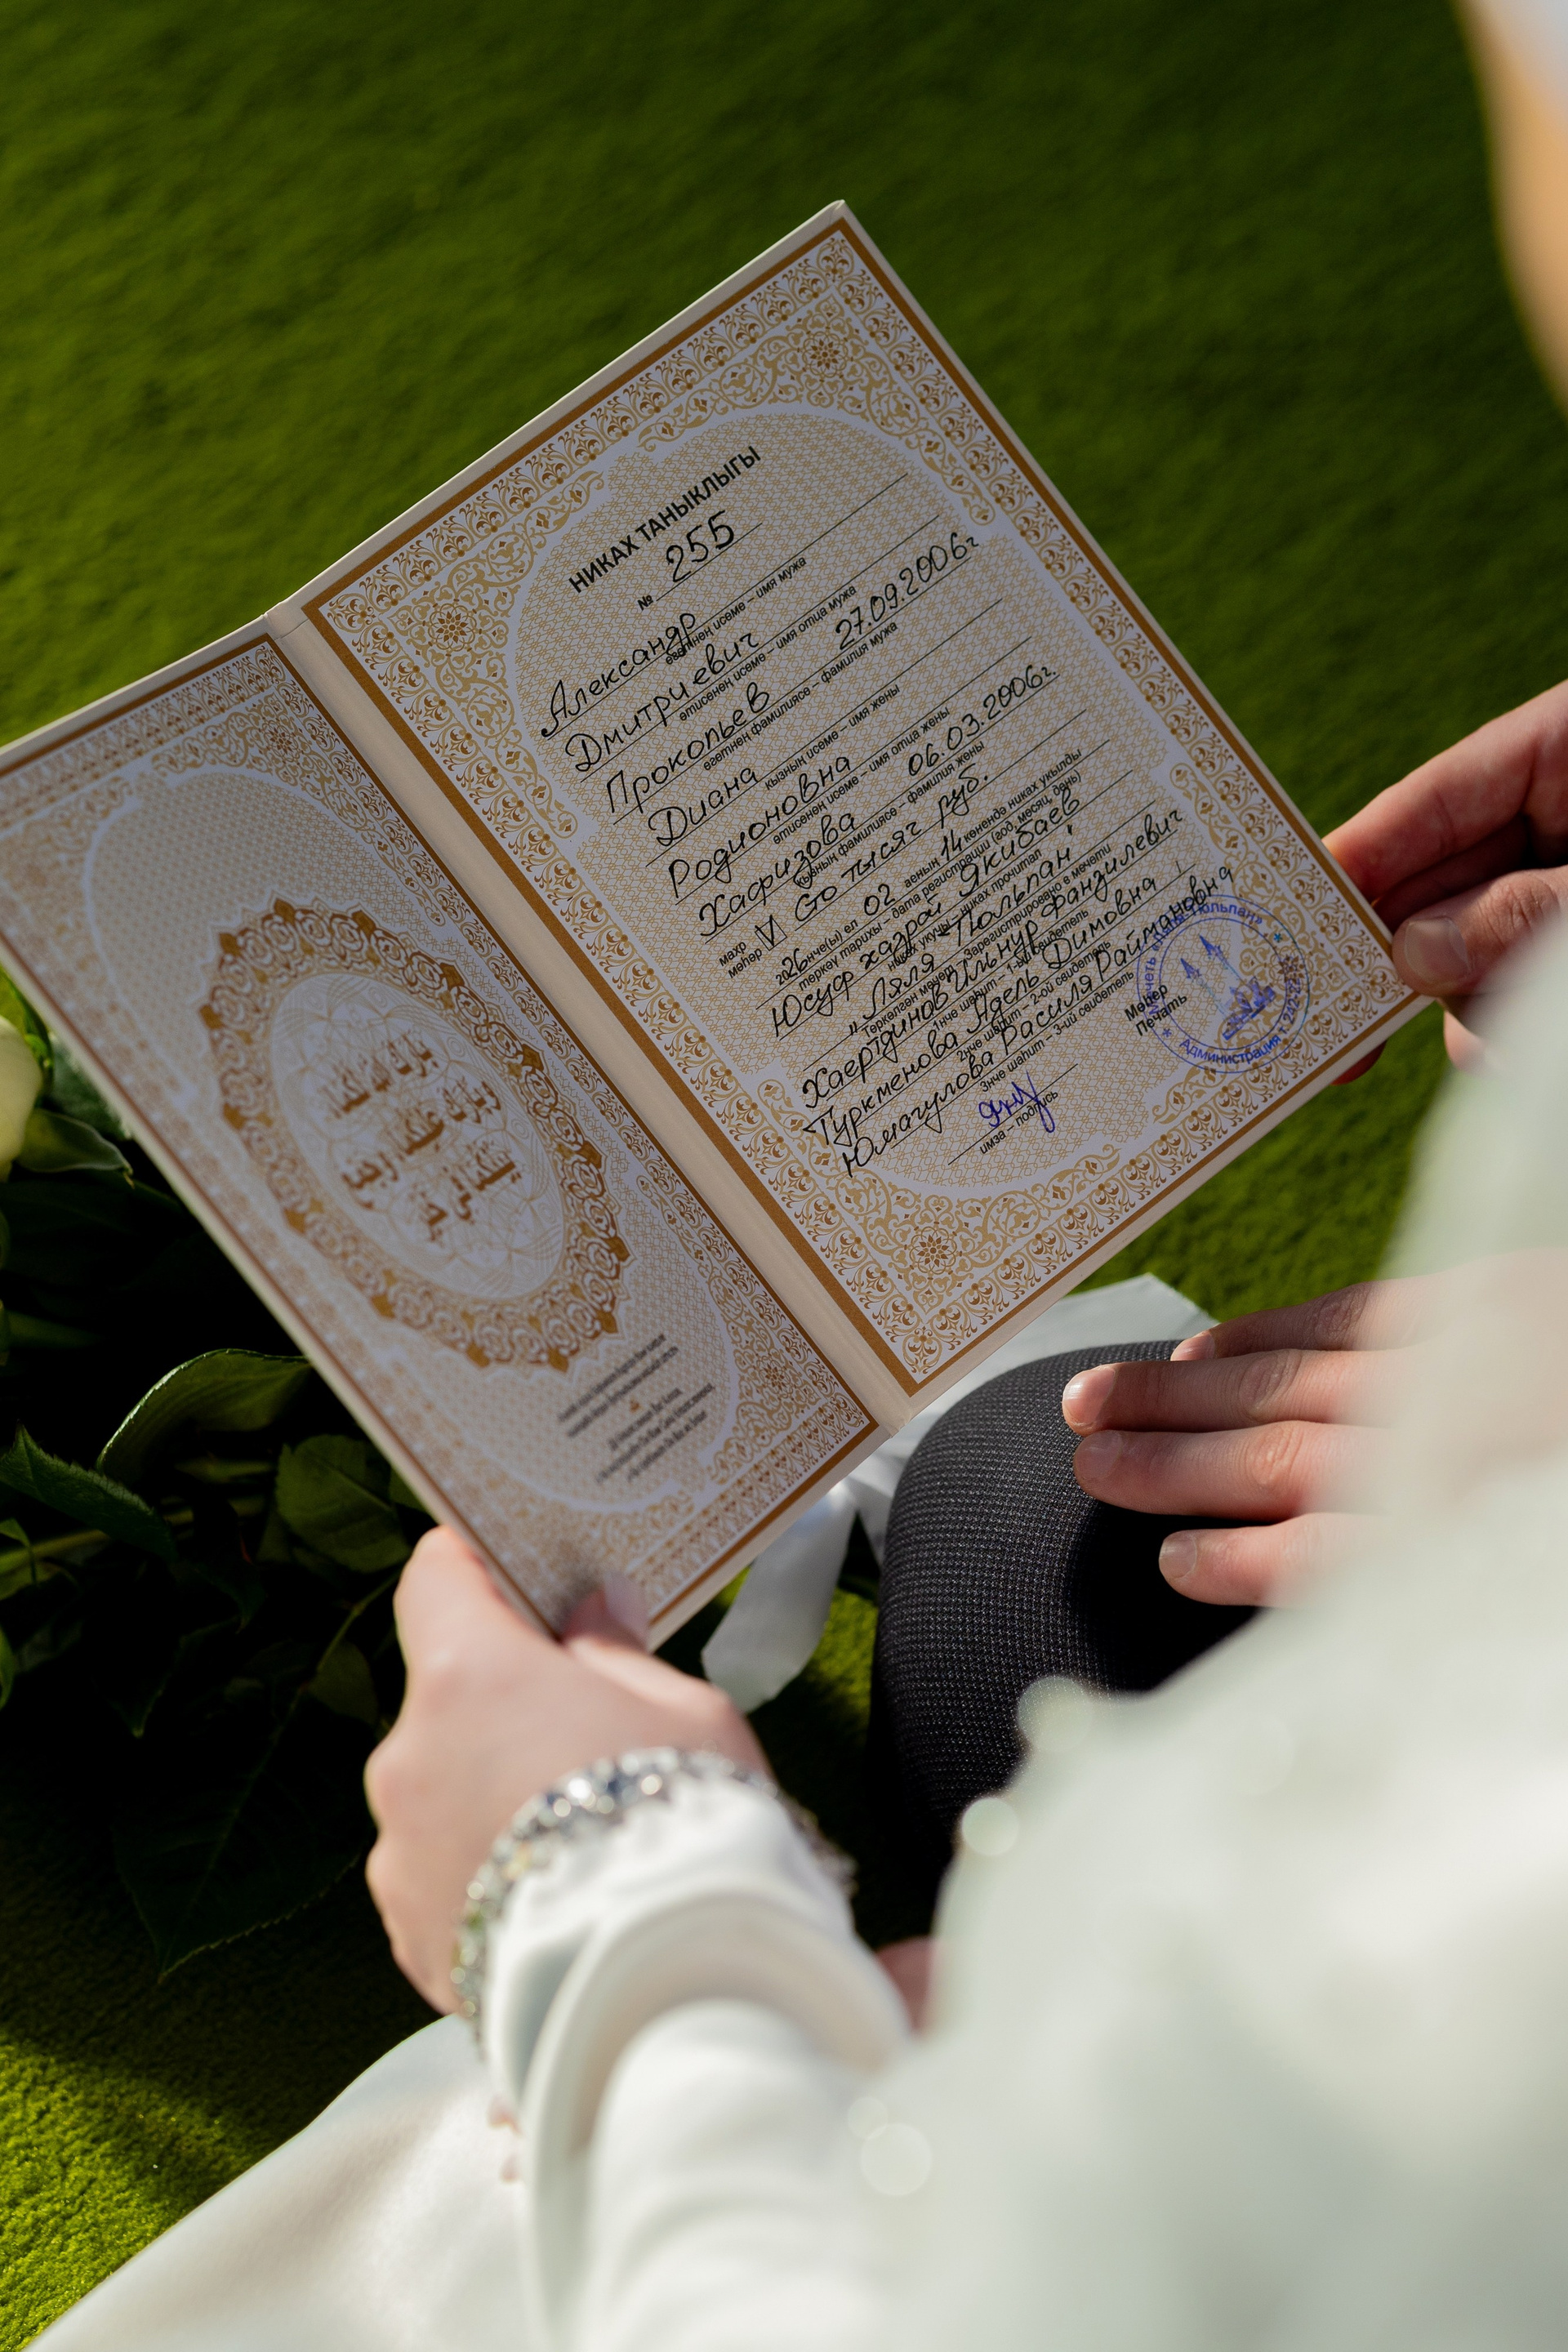 НИКАХ ТАНЫКЛЫГЫ
№ 255
Александр
егетнең исеме – имя мужа
Дмитриевич
әтисенең исеме – имя отца мужа
Прокопьев 27.09.2006г
егетнең фамилиясе – фамилия мужа
Диана
кызның исеме – имя жены
Родионовна
әтисенең исеме – имя отца жены
Хафизова 06.03.2006г.
кызның фамилиясе – фамилия жены
махр
мәһәр V Сто тысяг руб.
2026нче(ы) ел 02 аеның 14 көнендә никах укылды
теркәү тарихы – дата регистрации (год, месяц, день)
Юсуф хазрат Якибаев
никах укучы – никах прочитал
"Ляля Тюльпан"
Теркәлгән мәчет – Зарегистрировано в мечети
Хаертдинов Ильнур Фанзилевич
1нче шаһит – 1-ый свидетель
Туркменова Адель Димовна
2нче шаһит – 2-ой свидетель
Юмагулова Расиля Раймановна
3нче шаһит – 3-ий свидетель
имза – подпись
Мөһер
Печать
Мечеть «Ляля-Тюльпан»
Администрация
بارك الله لكما
وبارك عليكما وجمع
بينكما في خير